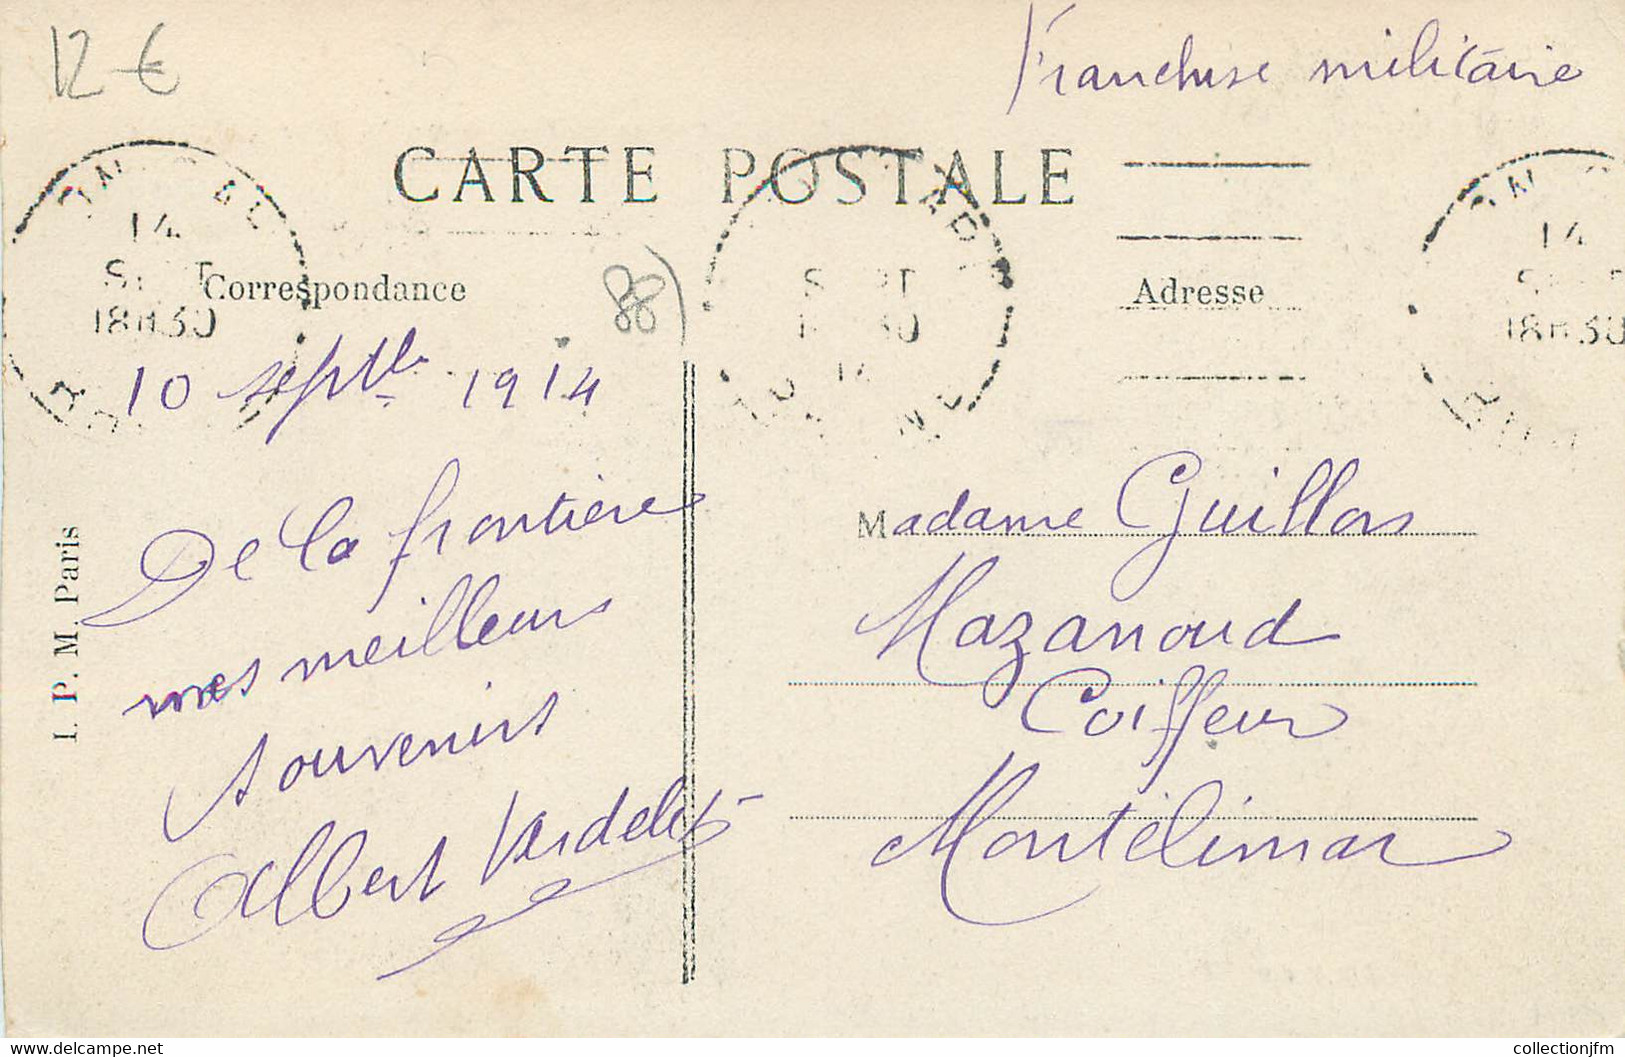 12 €
Franchise militaire
CARTE POSTALE
14
18H30
Correspondance
88)
Adresse
14
18H30
10 septbre 1914
De la frontière
mes meilleurs
souvenirs
Albert
Madame Guillon
Mazanoud
Coiffeur
Montélimar
I. P. M. Paris
collectionjfm